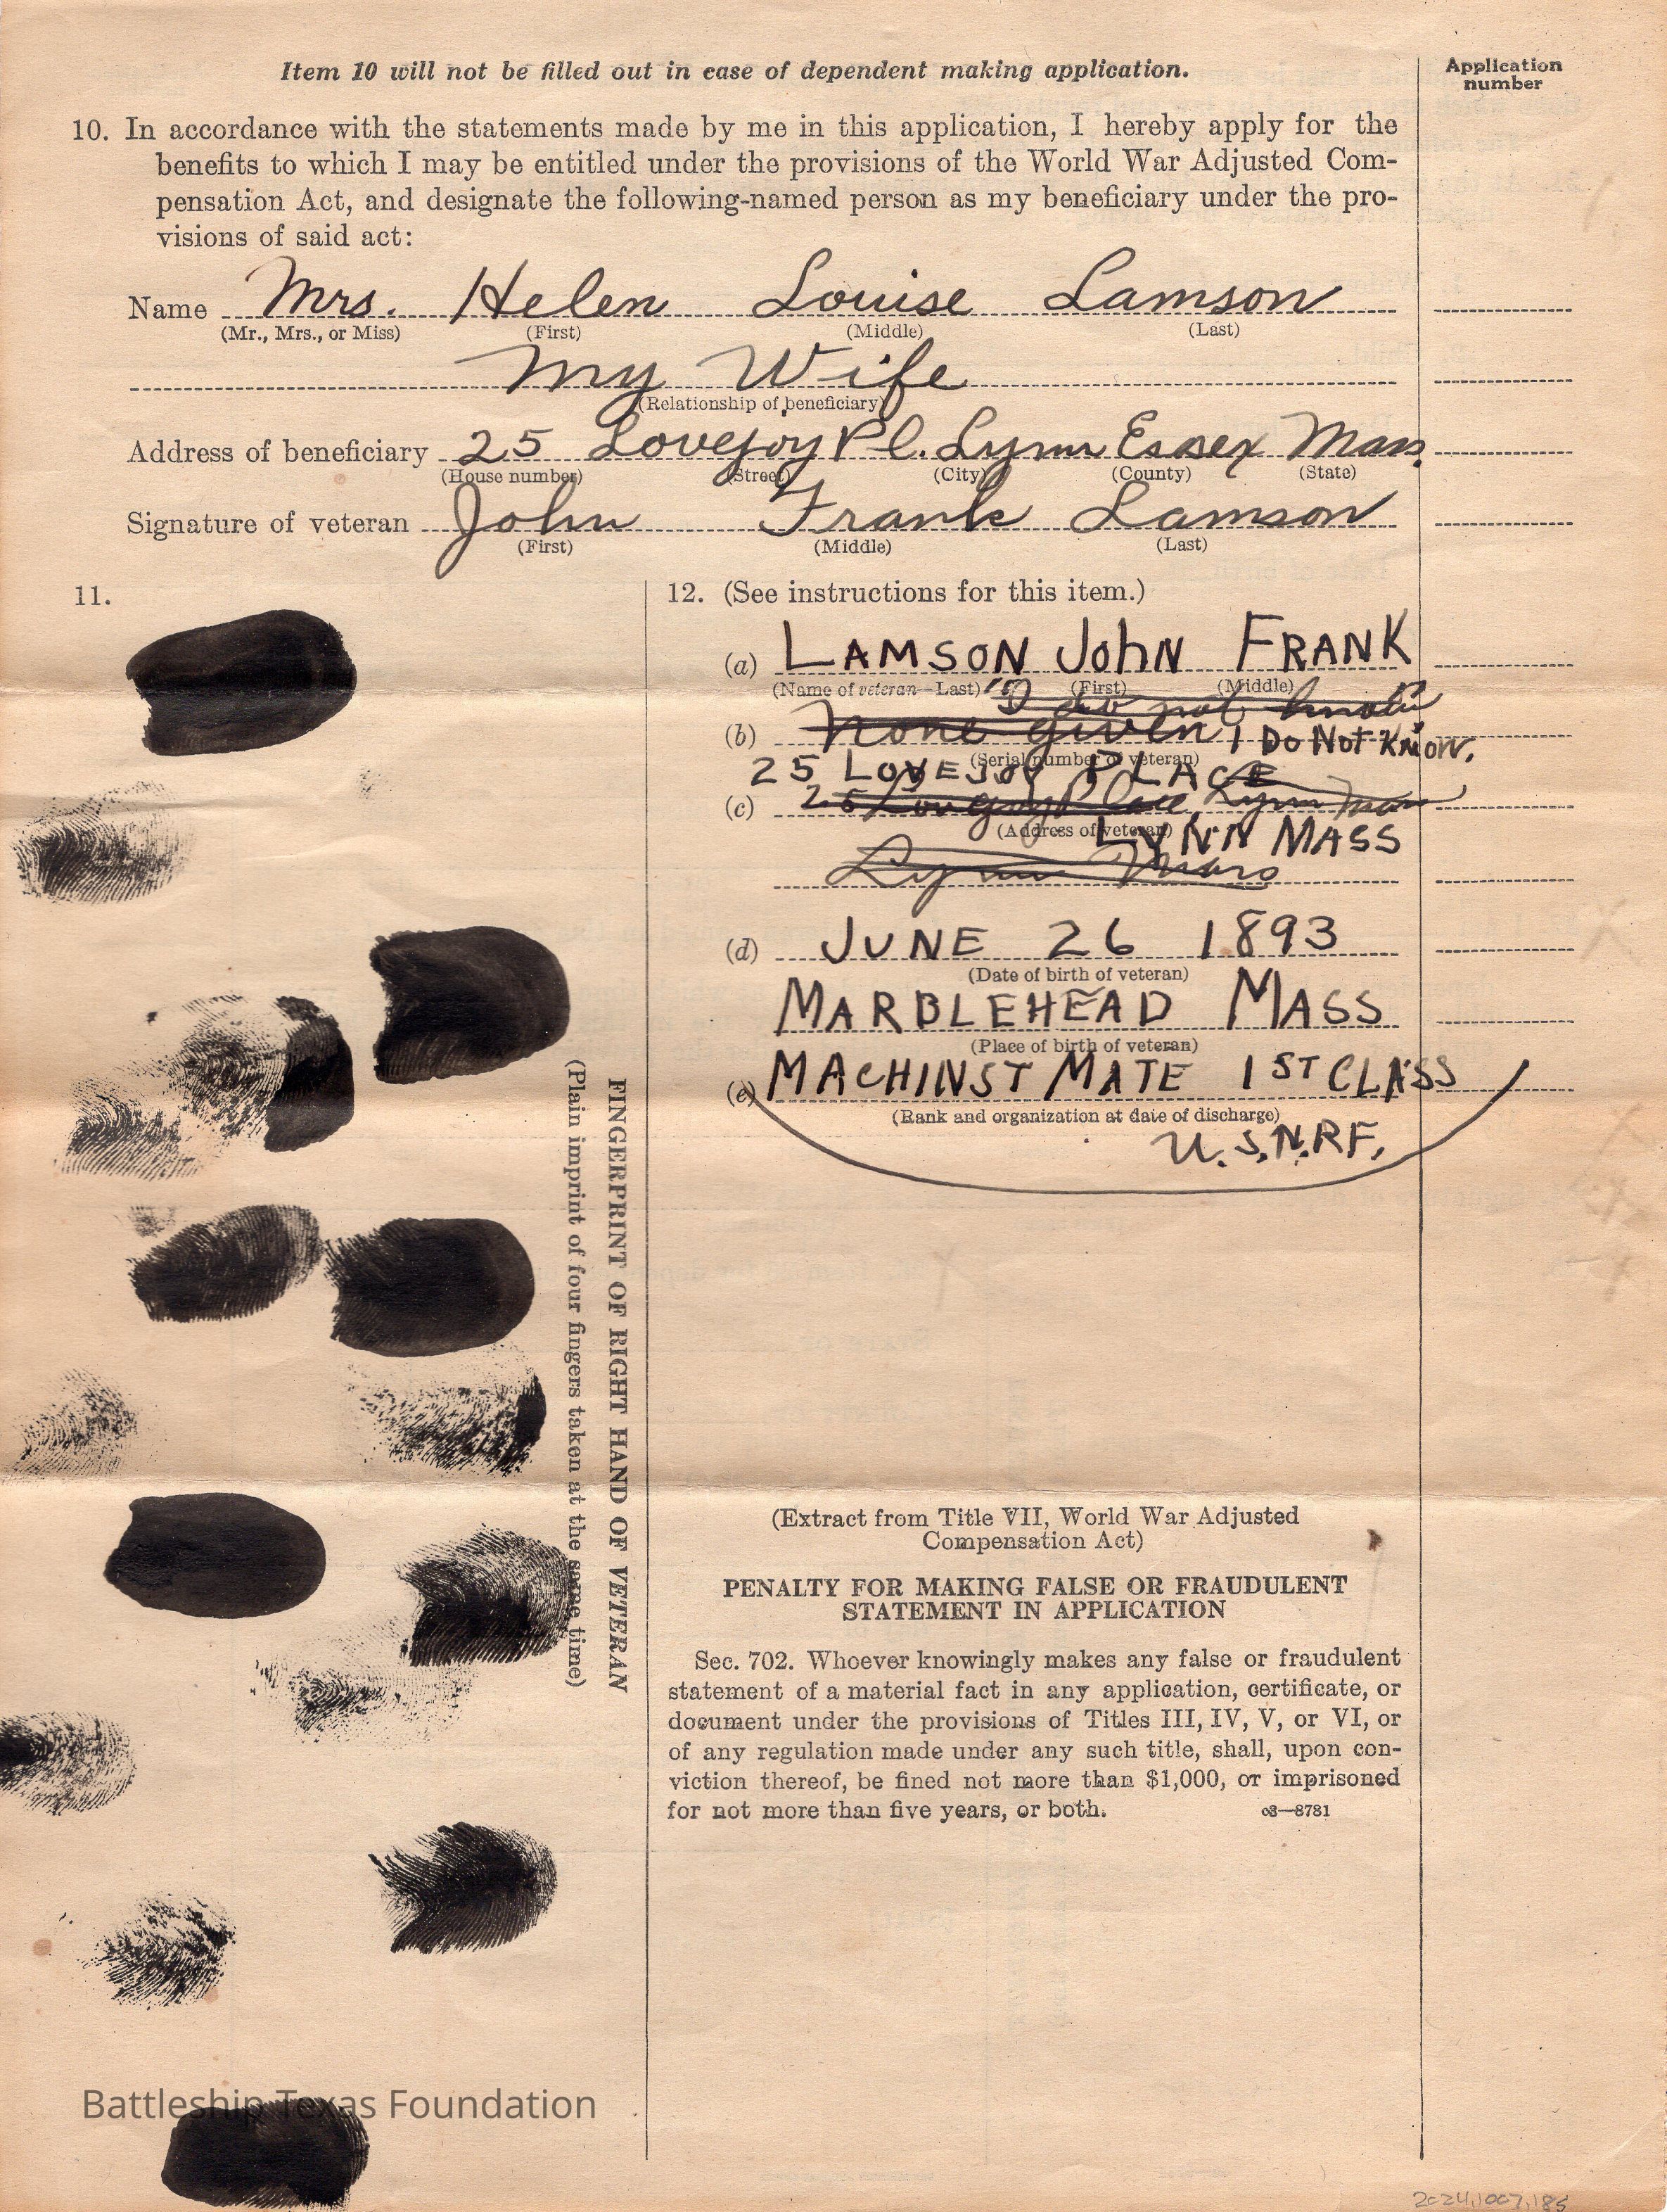 Item 10 will not be filled out in case of dependent making application.
Application
number
10. In accordance with the statements made by me in this application, I hereby apply for the
benefits to which I may be entitled under the provisions of the World War Adjusted Com-
pensation Act, and designate the following-named person as my beneficiary under the pro-
visions of said act:
Name Mrs. Helen Louise Lamson
(Mr., Mrs., or Miss) (First) (Middle) (Last)
My Wife
(Relationship of beneficiary)
Address of beneficiary 25 Lovejoy Pl. Lynn Essex Mass.
(House number) (Street) (City) (County) (State)
Signature of veteran John Frank Lamson
(First) (Middle) (Last)
11.
FINGERPRINT OF RIGHT HAND OF VETERAN
(Plain imprint of four fingers taken at the same time)
12. (See instructions for this item.)
(a) LAMSON JOHN FRANK
(Name of veteran—Last) (First) (Middle)
I do not know
(b) None given I DO NOT KNOW.
(Serial number of veteran)
25 LOVEJOY PLACE
(c) 25 Lovejoy Place Lynn Mass
(Address of veteran)
LYNN MASS
Lynn Mass
(d) JUNE 26 1893
(Date of birth of veteran)
MARBLEHEAD MASS
(Place of birth of veteran)
(e) MACHINST MATE 1ST CLASS
(Rank and organization at date of discharge)
U.S.N.R.F.
(Extract from Title VII, World War Adjusted
Compensation Act)
PENALTY FOR MAKING FALSE OR FRAUDULENT
STATEMENT IN APPLICATION
Sec. 702. Whoever knowingly makes any false or fraudulent
statement of a material fact in any application, certificate, or
document under the provisions of Titles III, IV, V, or VI, or
of any regulation made under any such title, shall, upon con-
viction thereof, be fined not more than $1,000, or imprisoned
for not more than five years, or both. o3—8781
Battleship Texas Foundation
2024.1007.185